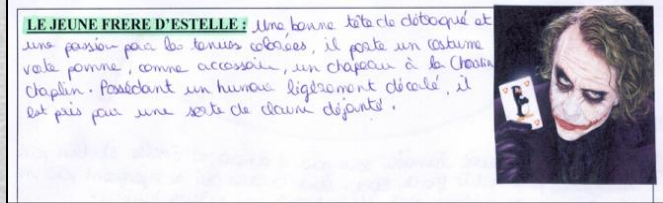 LE JEUNE FRERE D'ESTELLE : Une bonne tête de détraqué et
une passion pour les tenues colorées, il porte un costume
verte pomme, comme accessoire, un chapeau à la Charlie
chaplin. Possédant un humour légèrement décalé, il
est pris pour une sorte de clown déjanté.